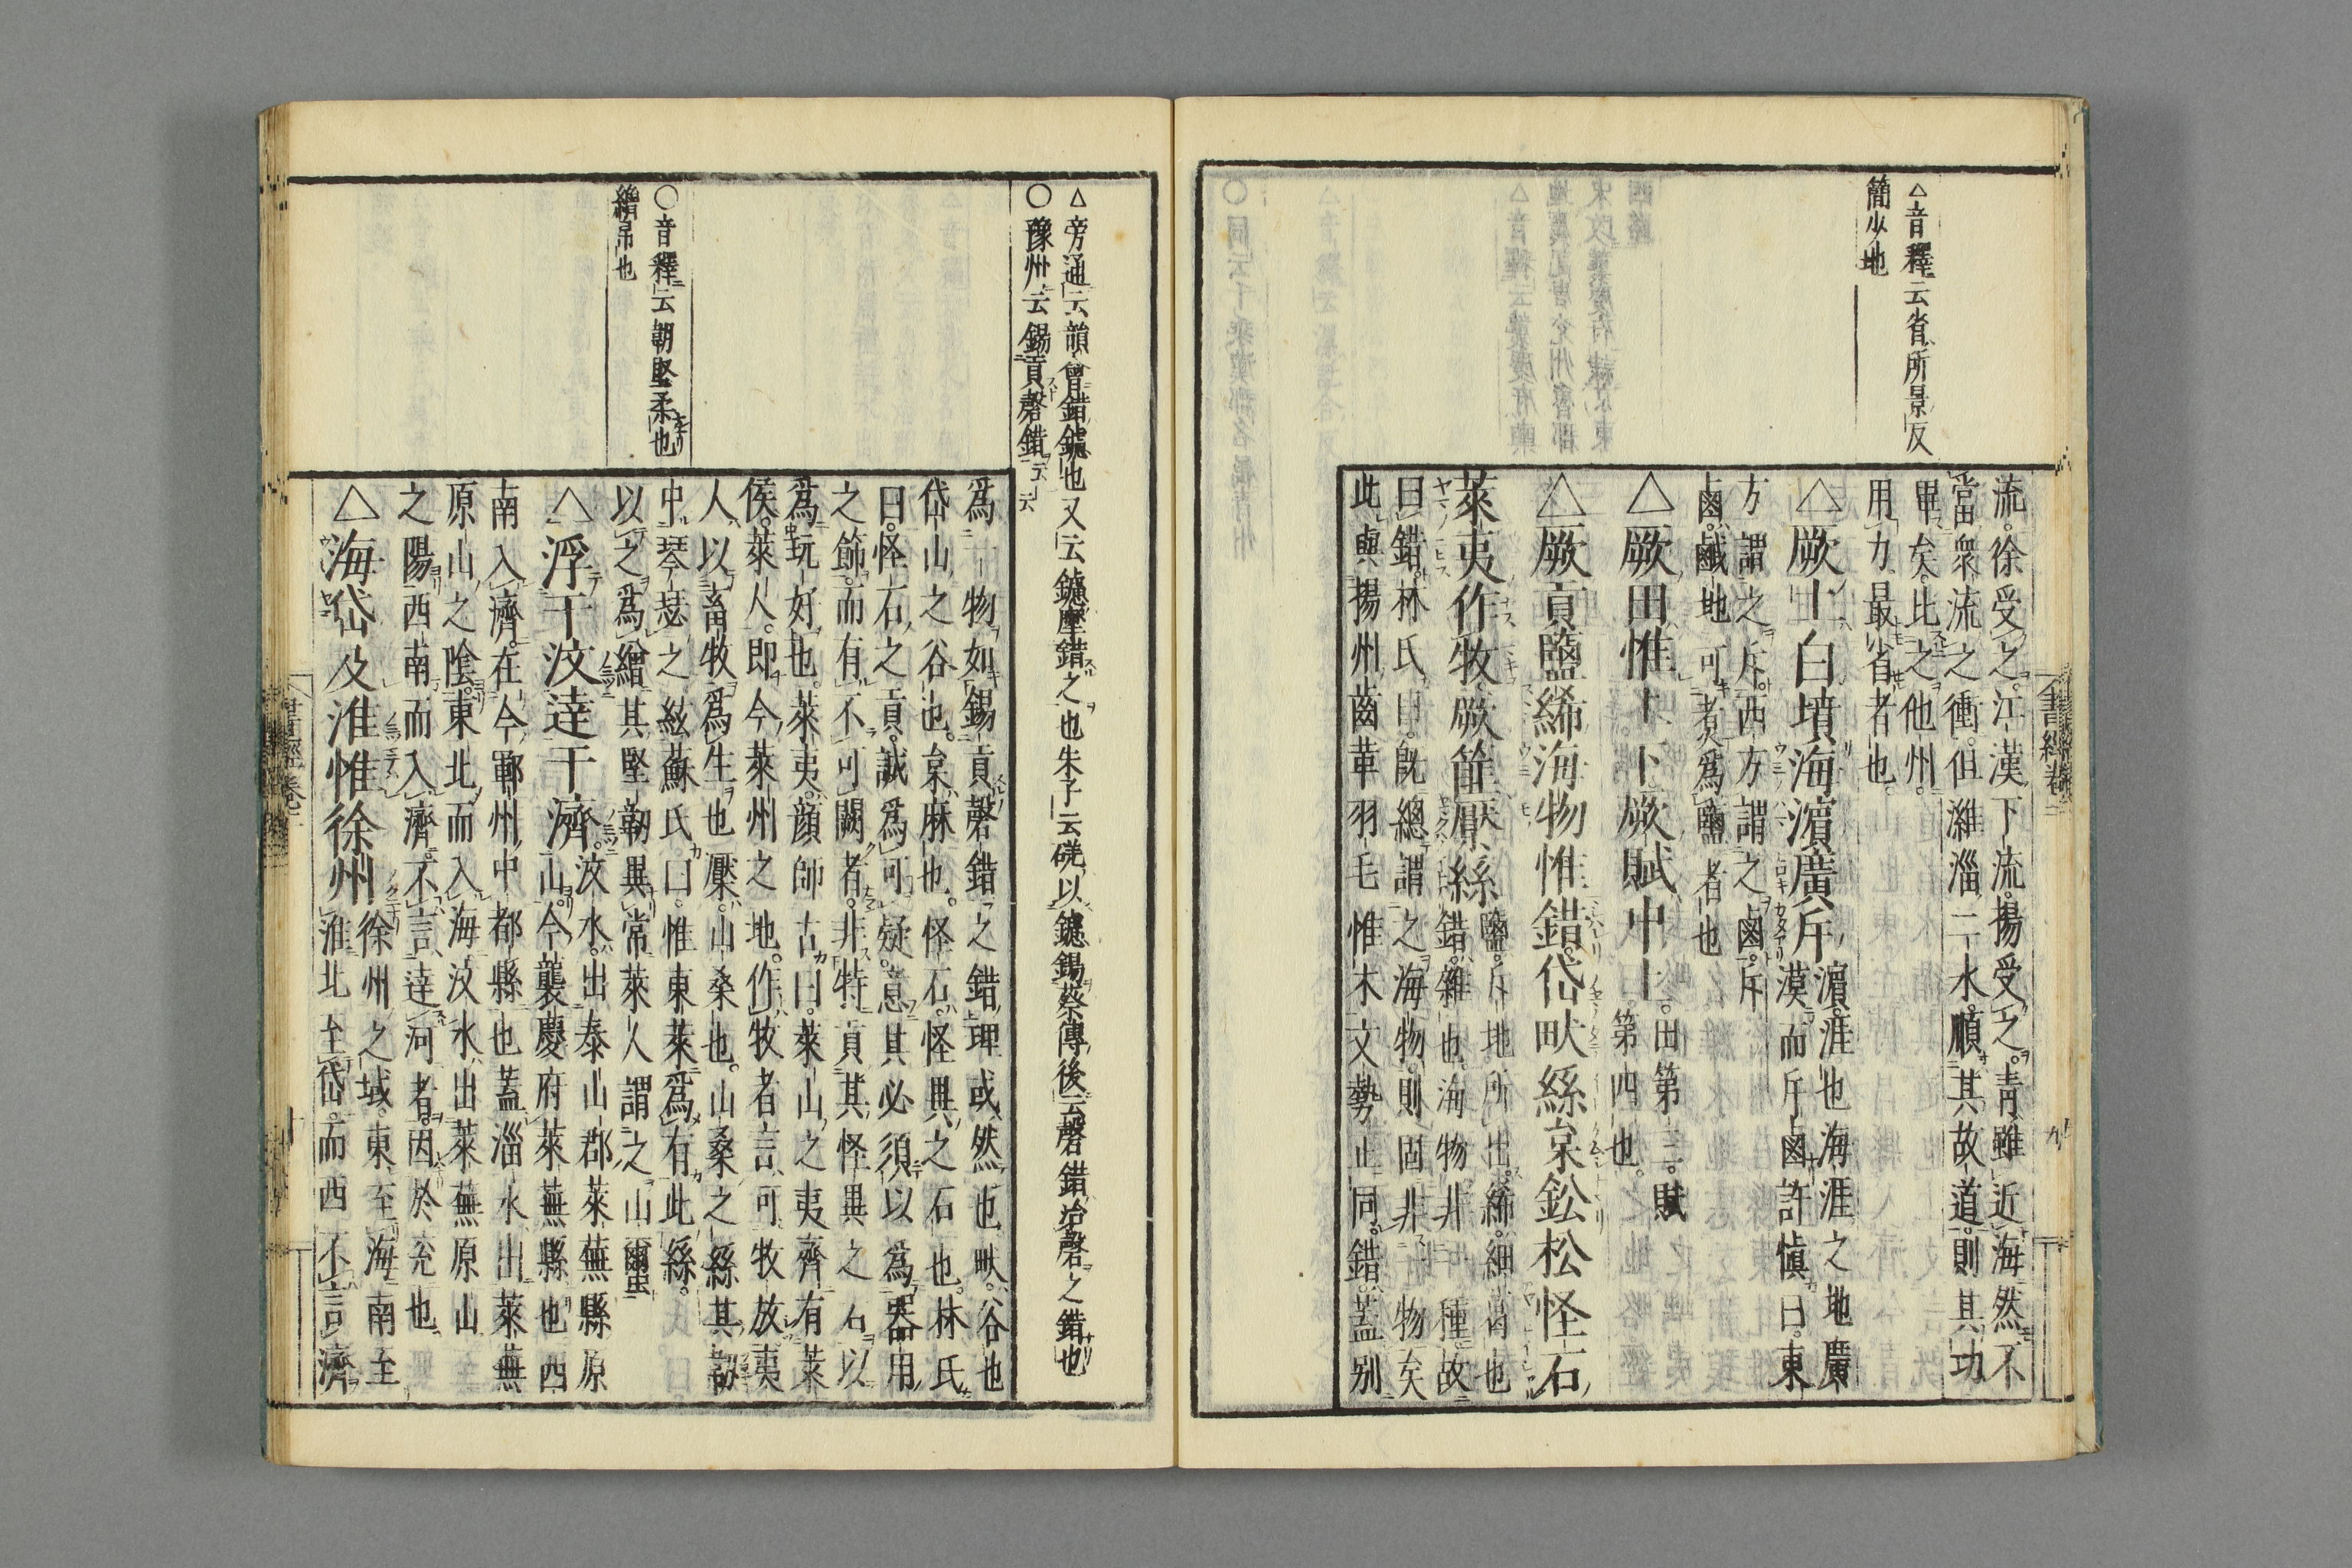 △音釋云省所景反
簡少也
流。徐受之。江漢下流。揚受之。青雖近海然不
當衆流之衝。但濰淄二水。順其故道。則其功
畢矣。比之他州。
用力最省者也。
△厥土白墳海濱廣斥
濱。涯也海涯之地廣
漠而斥鹵許愼曰。東
方謂之斥。西方謂之鹵。斥
鹵。鹹地可煑爲鹽者也
△厥田惟上下厥賦中上。
田第三。賦
第四也。
△厥貢鹽絺海物惟錯岱畎絲枲鈆松怪石
萊夷作牧厥篚檿絲
鹽。斥地所出。絺。細葛也
錯。雜也。海物非一種。故
曰錯。林氏曰。旣總謂之海物。則固非一物矣
此與揚州齒革羽毛惟木文勢正同。錯。蓋别
△旁通云韻會錯鑢也又云鑢壓錯之也朱子云磋以鑢鍚蔡傳後云磬錯治磬之錯也
○豫州云錫貢磬錯云云
○音釋云韌堅柔也
繒帛也
爲一物。如錫貢磬錯之錯。理或然也。畎。谷也
岱山之谷也。枲。麻也。怪石。怪異之石也。林氏
曰。怪石之貢。誠爲可疑。意其必須以爲器用
之飾。而有不可闕者。非特貢其怪異之石以
爲玩好也。萊夷。顔師古曰。萊山之夷齊有萊
侯。萊人。即今萊州之地。作牧者言可牧放夷
人以畜牧爲生也檿。山桑也。山桑之絲其韌
中琴瑟之絃蘇氏曰。惟東萊爲有此絲。
以之爲繒其堅韌異常萊人謂之山繭
△浮于汶達于濟。
汶水。出泰山郡萊蕪縣原
山。今襲慶府萊蕪縣也西
南入濟。在今鄆州中都縣也蓋淄水出萊蕪
原山之陰。東北而入海汶水出萊蕪原山
之陽西南而入濟。不言達河者。因於兖也
△海岱及淮惟徐州
徐州之域。東至海南至
淮北至岱。而西不言濟
書經卷二
九
十